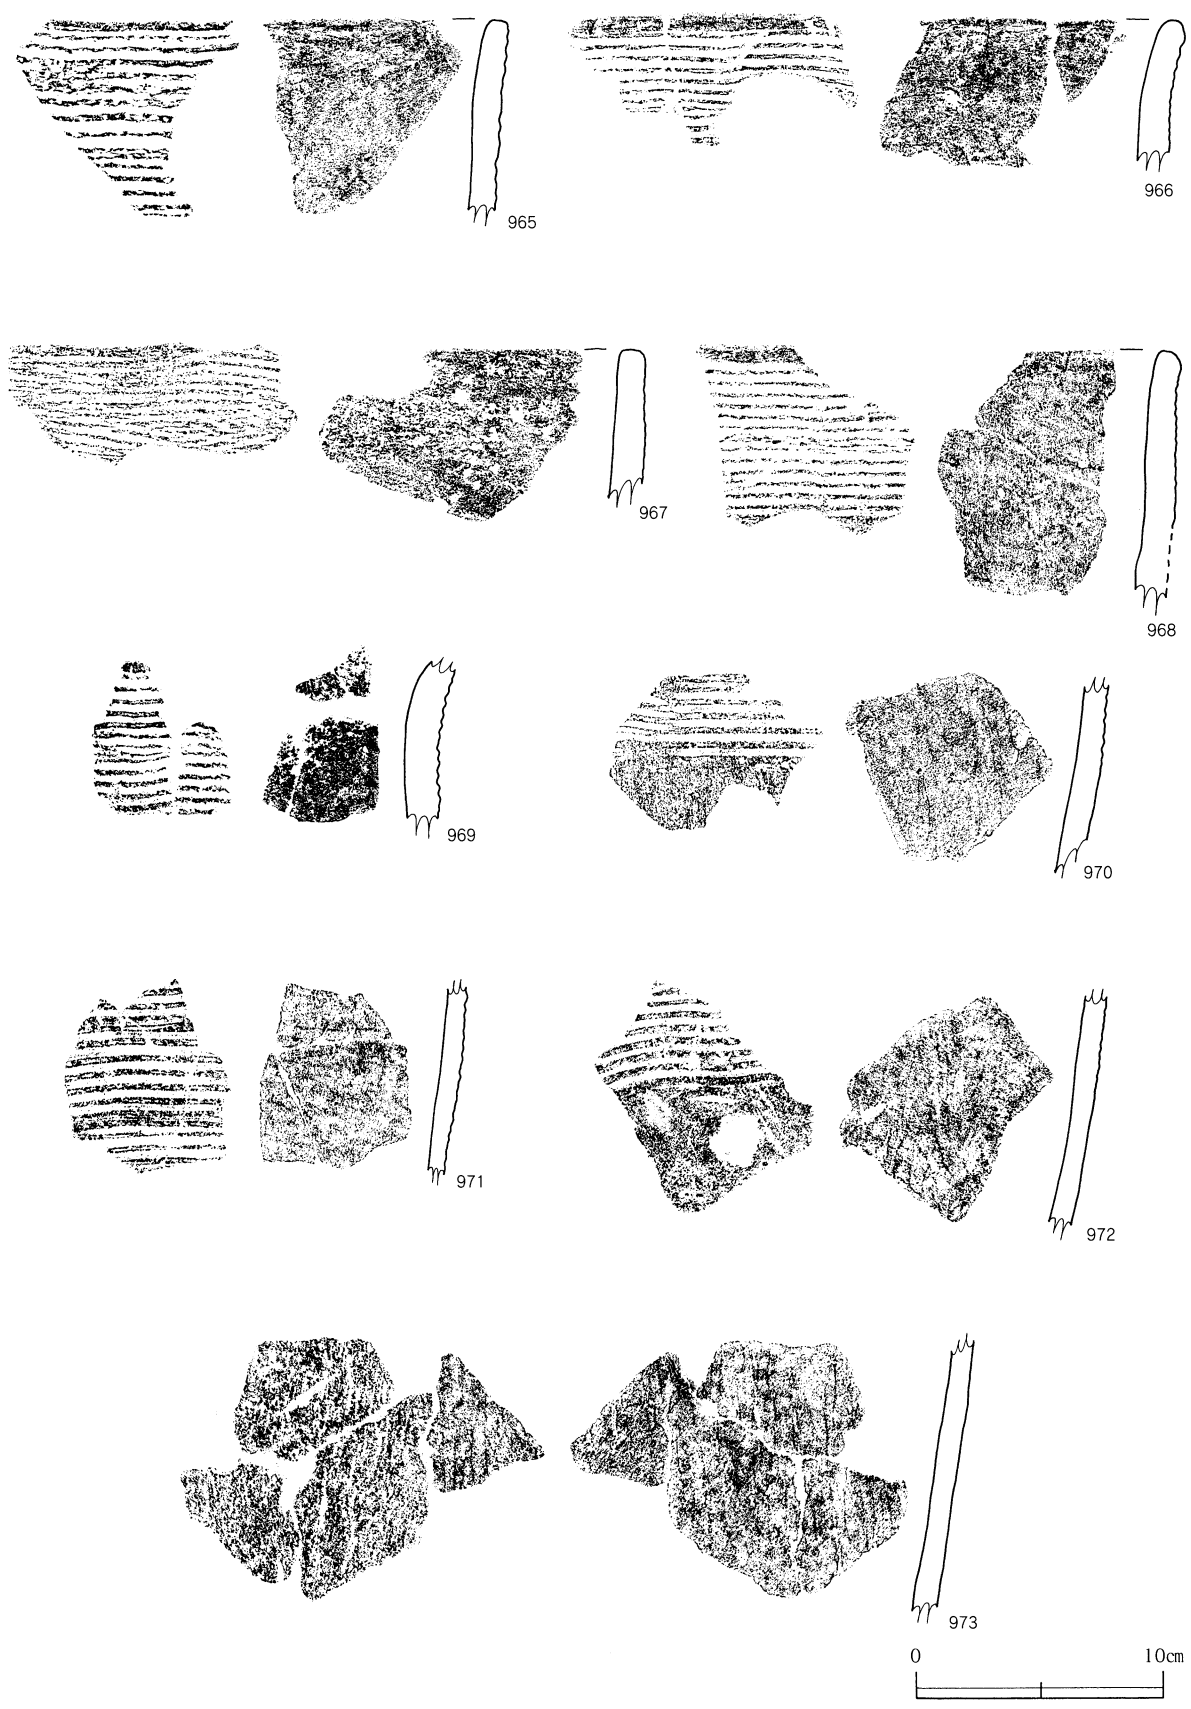 965
966
967
968
969
970
971
972
973
0 10cm